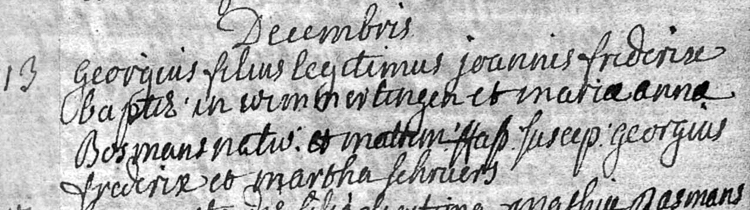 Decembris
13 georgius filius legitimus joannis frederix
baptis: in wimmertingen et maria anna
Bosmans natus: et suscep: georgius
frederix et martha schruers